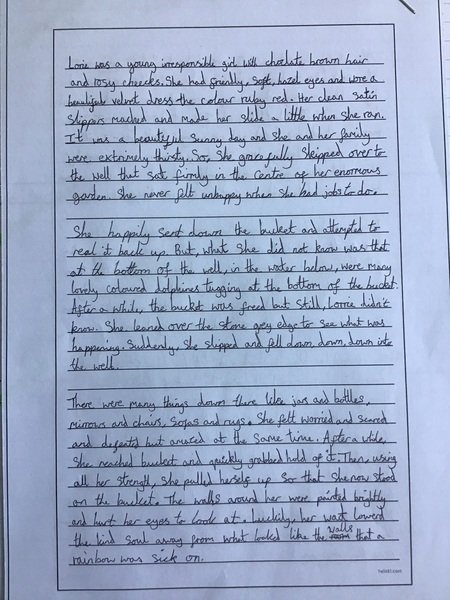 Lorrie was a young irresponsible girl with choclate brown hair
and rosy cheecks. She had friendly, soft, hazel eyes and wore a
beautiful velvet dress the colour ruby red. Her clean satin
slippers mached and made her slide a little when she ran.
It was a beautiful sunny day and she and her family
were extrimely thirsty. So, she gracefully skipped over to
the well that sat firmly in the centre of her enormous
garden. She never felt unhappy when she had jobs to do.
She happily sent down the bucket and attempted to
real it back up. But, what she did not know was that
at the bottom of the well, in the water below, were many
lovely coloured dolphines tugging at the bottom of the bucket.
After a while, the bucket was freed but still, Lorrie didn't
know. She leaned over the stone grey edge to see what was
happening. Suddenly, she slipped and fell down, down, down into
the well.
There were many things down there like jars and bottles,
mirrows and chairs, sofas and rugs. She felt worried and scared
and defeated but amused at the same time. After a while,
she reached bucket and quickly grabbed hold of it. Then, using
all her strength, she pulled herself up so that she now stood
on the bucket. The walls around her were painted brightly
and hurt her eyes to look at. Luckily, her wait lowerd
the kind soul away from what looked like the walls that a
rainbow was sick on.
twinkl.com